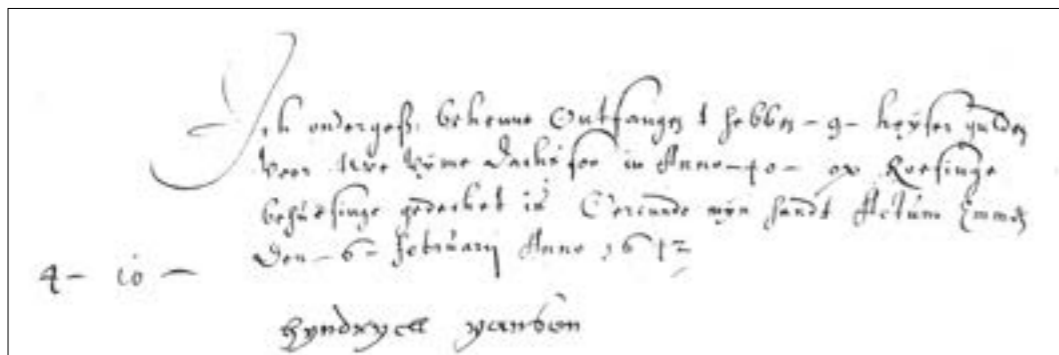 Ick ondergesß. bekenne Ontfangen t hebben – 9 – keyser gulden
voor twe vyme dack so in Anno – 40 – op Roesinge
behusinge gedecket is Oercunde myn handt Actum Emmd
Den – 6 – february Anno 1642
4 – 10 –
hyndryck yansen